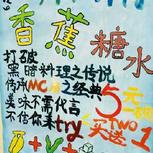 香蕉糖水
打破
黑暗料理之传说
传承MC之经典
美味不需代言
不信你来try
5元
Two
买送1